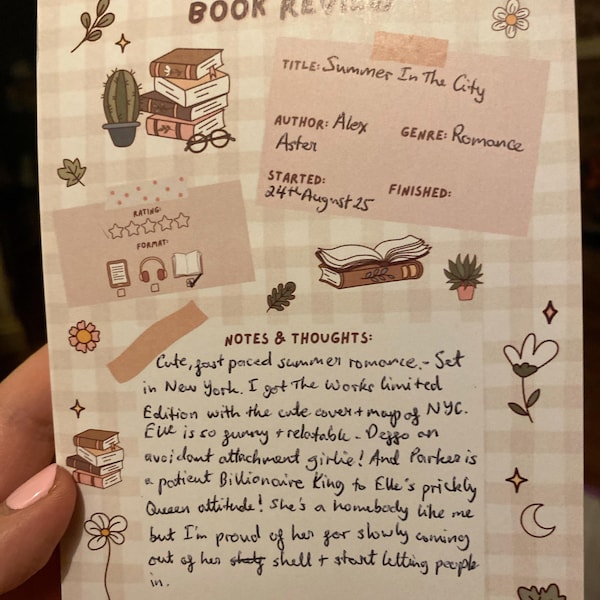 BOOK REVIEW
TITLE: Summer In The City
AUTHOR: Alex Aster
GENRE: Romance
STARTED: 24th August 25
FINISHED:
RATING:
FORMAT:
NOTES & THOUGHTS:
Cute, fast paced summer romance. - Set
in New York. I got The Works limited
Edition with the cute cover + map of NYC.
Elle is so funny + relatable - Deffo an
avoidant attachment girlie! And Parker is
a patient Billionaire King to Elle's prickly
Queen attitude! She's a homebody like me
but I'm proud of her for slowly coming
out of her shell + start letting people
in.